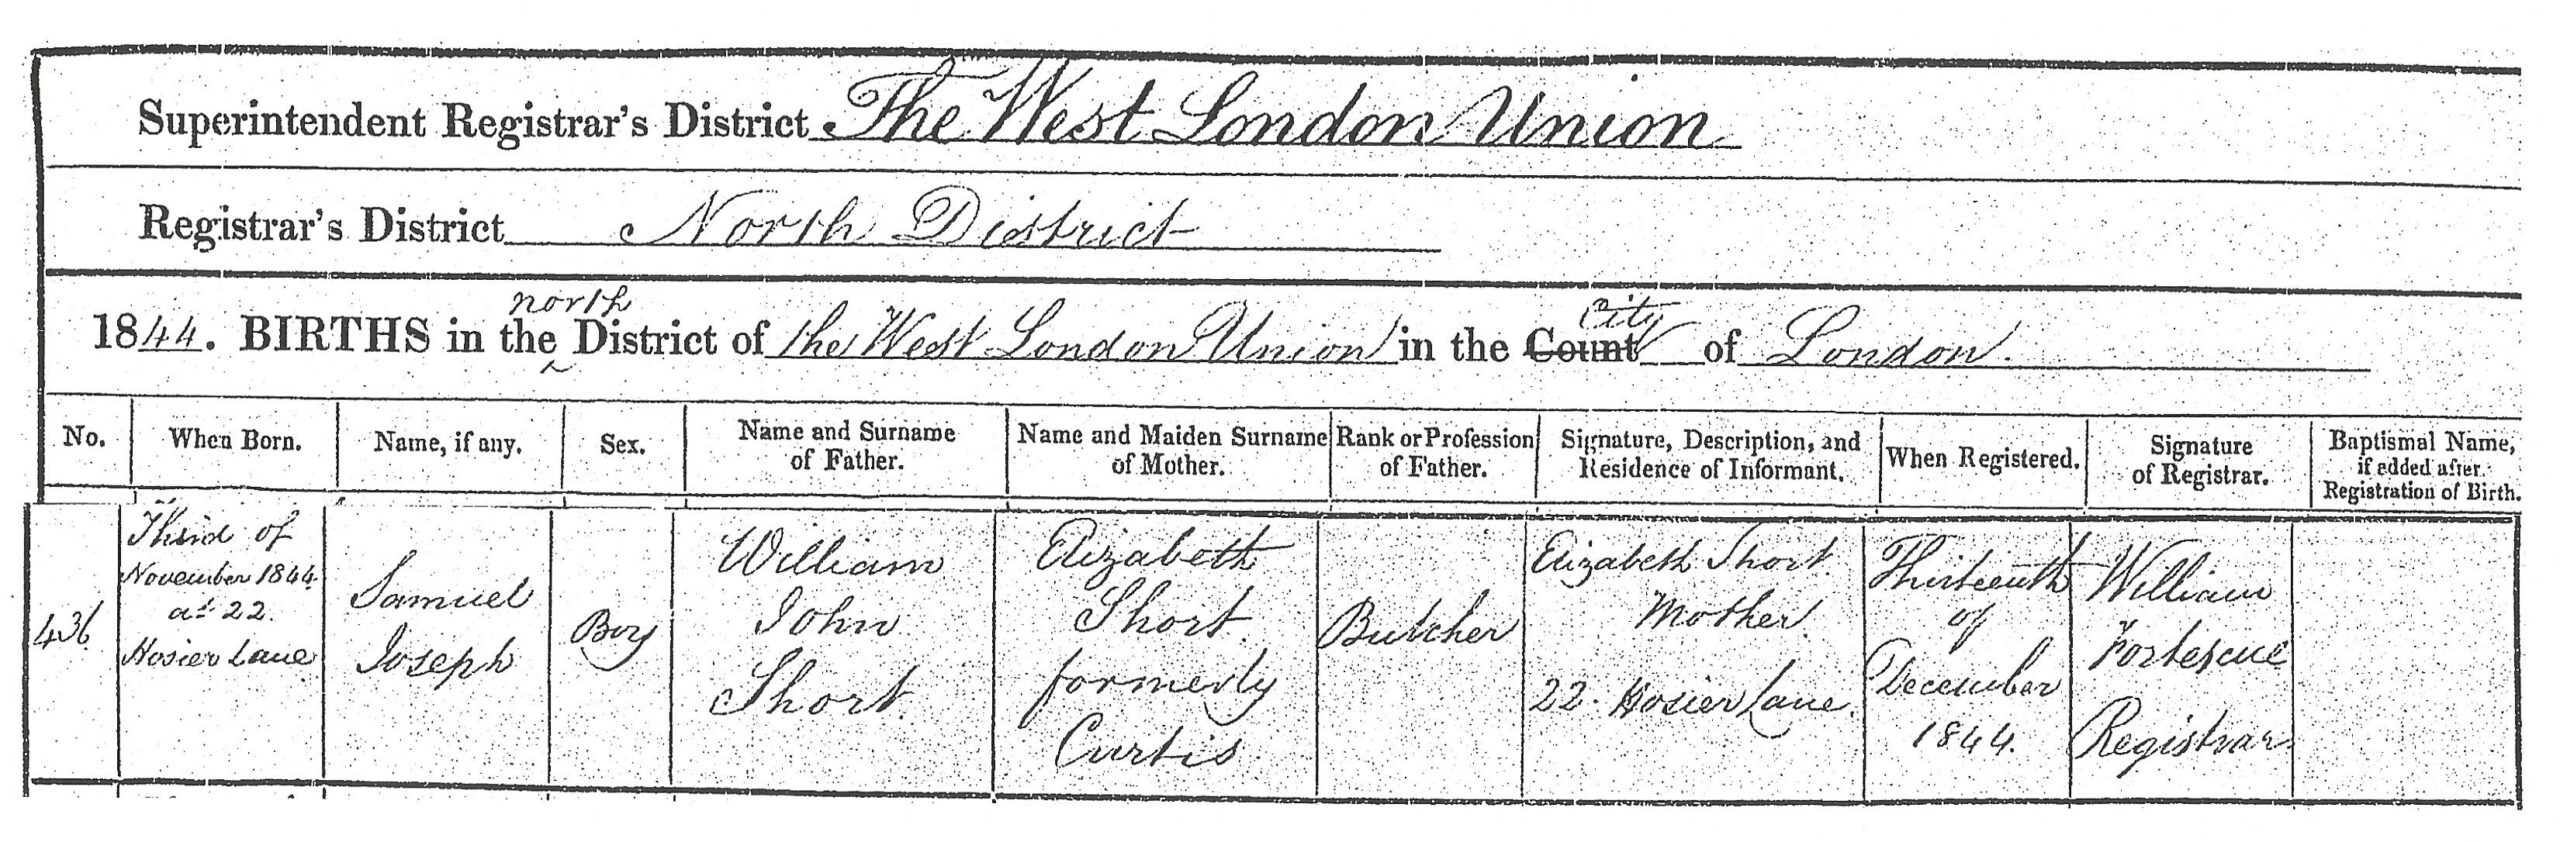 Superintendent Registrar's District The West London Union
Registrar's District North District
north
city
1844. BIRTHS in the District of the West London Union in the County of London.
No.
When Born.
Name, if any.
Sex.
Name and Surname
of Father.
Name and Maiden Surname
of Mother.
Rank or Profession
of Father.
Signature, Description, and
Residence of Informant.
When Registered.
Signature
of Registrar.
Baptismal Name,
if added after
Registration of Birth.
436
Third of
November 1844
at 22.
Hosier Lane
Samuel
Joseph
Boy
William
John
Short
Elizabeth
Short
formerly
Curtis
Butcher
Elizabeth Short
Mother
22. Hosier Lane.
Thirteenth
of
December
1844.
William
Fortescue
Registrar